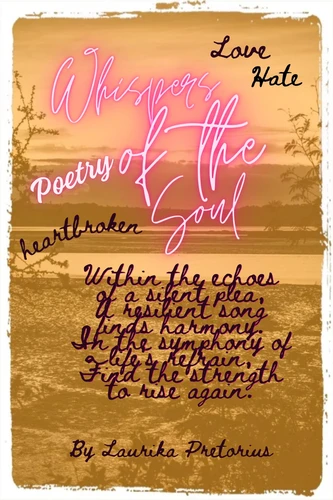 Love
Hate
Whispers
of the
Poetry
Soul
heartbroken
Within the echoes
of a silent plea,
A resilient song
finds harmony.
In the symphony of
life's refrain,
Find the strength
to rise again.
By Laurika Pretorius